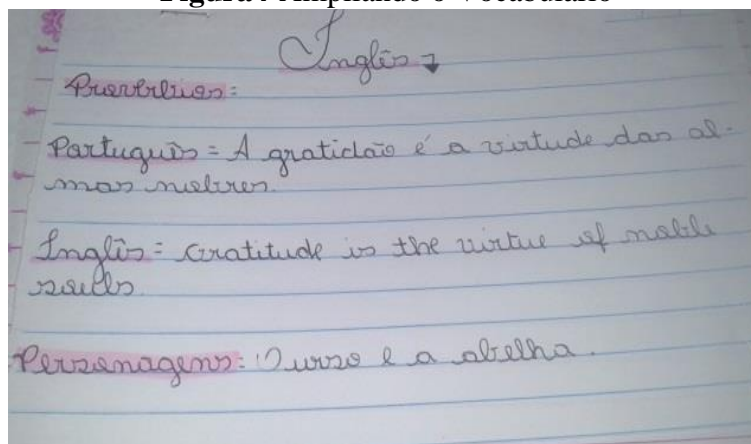 Inglês
Provérbios:
Português = A gratidão é a virtude das al-
mas nobres.
Inglês = Gratitude is the virtue of noble
souls.
Personagens: O urso e a abelha.